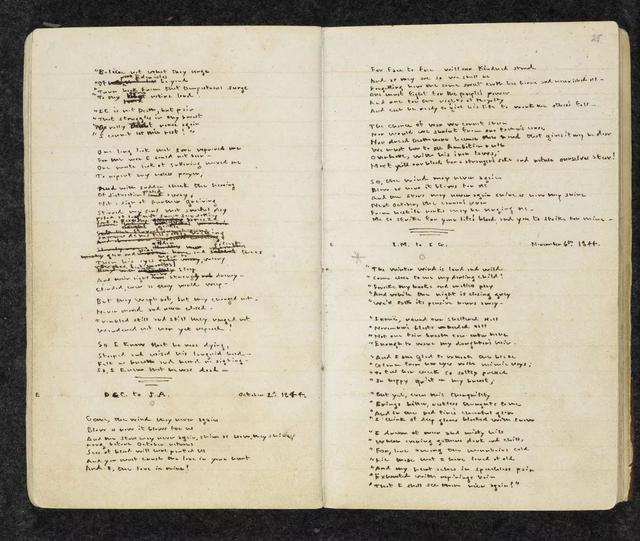 "Believe not what they urge
"Of Edens isles beyond
"Turn back from that tempestuous surge
"To thy own native land!
"It is not Death, but pain
"That struggles in thy breast
"Nay rally, Rosina, rouse again
"I cannot let thee rest!"
One long look that sore reproved me
For the woe I could not bear -
One mute look of suffering moved me
To repent my useless prayer;
And with sudden check the heaving
Of distraction passed away;
Not a sign of further grieving
Stirred my soul that awful day
But they wept not, but they changed not -
Never moved and never closed -
Troubled still and still they ranged not
Wandered not nor yet reposed!
So, I knew that he was dying,
Stooped and raised his languid head -
Felt no breath and heard no sighing -
So, I knew that he was dead -
E D.G.C. to J.A. October 2d. 1844.
Come, the wind may never again
Blow as now it blows for us
And the stars may never again, shine as now they shine,
Long before October returns
Seas of blood will have parted us
And you must crush the love in your heart
And I, the love in mine!
25
For face to face will our Kindred stand
And as they are so we shall be
Forgetting how the same sweet earth has borne and nourished all -
One must fight for the people's power
And one for the rights of Royalty
And each be ready to give his life to work the other's fall -
The chance of war we cannot shun
Nor would we shrink from our fathers' cause,
Nor dread Death more because the hand that gives it may be dear
We must bear to see Ambition rule
Over Love, with his iron laws;
Must yield our blood for a stranger's sake and refuse ourselves a tear!
So, the wind may never again
Blow as now it blows for us
And the stars may never again shine as now they shine
Next October, the cannon's roar
From hostile ranks may be urging us -
Me to strike for your life's blood and you to strike for mine -
E I.M. to I.G. November 6th. 1844.
"The winter wind is loud and wild
"Come close to me my darling child!
"Forsake thy books and mateless play
"And while the night is closing grey
"We'll talk its pensive hours away -
"Iernë, round our sheltered hall
"November's blasts unheeded call
"Not one faint breath can enter here
"Enough to wave my daughter's hair -
"And I am glad to watch the blaze
"Glance from her eyes with mimic rays;
"To feel her cheek so softly pressed
"In happy quiet on my breast;
"But yet, even this tranquillity
"Brings bitter, restless thoughts to me
"And in the red fire's cheerful glow
"I think of deep glens blocked with snow
"I dream of moor and misty hill
"Where evening gathers dark and chill,
"For, lone among the mountains cold
"Lie those that I have loved of old
"And my heart aches in speechless pain
"Exhausted with repinings vain
"That I shall see them ne'er again!"